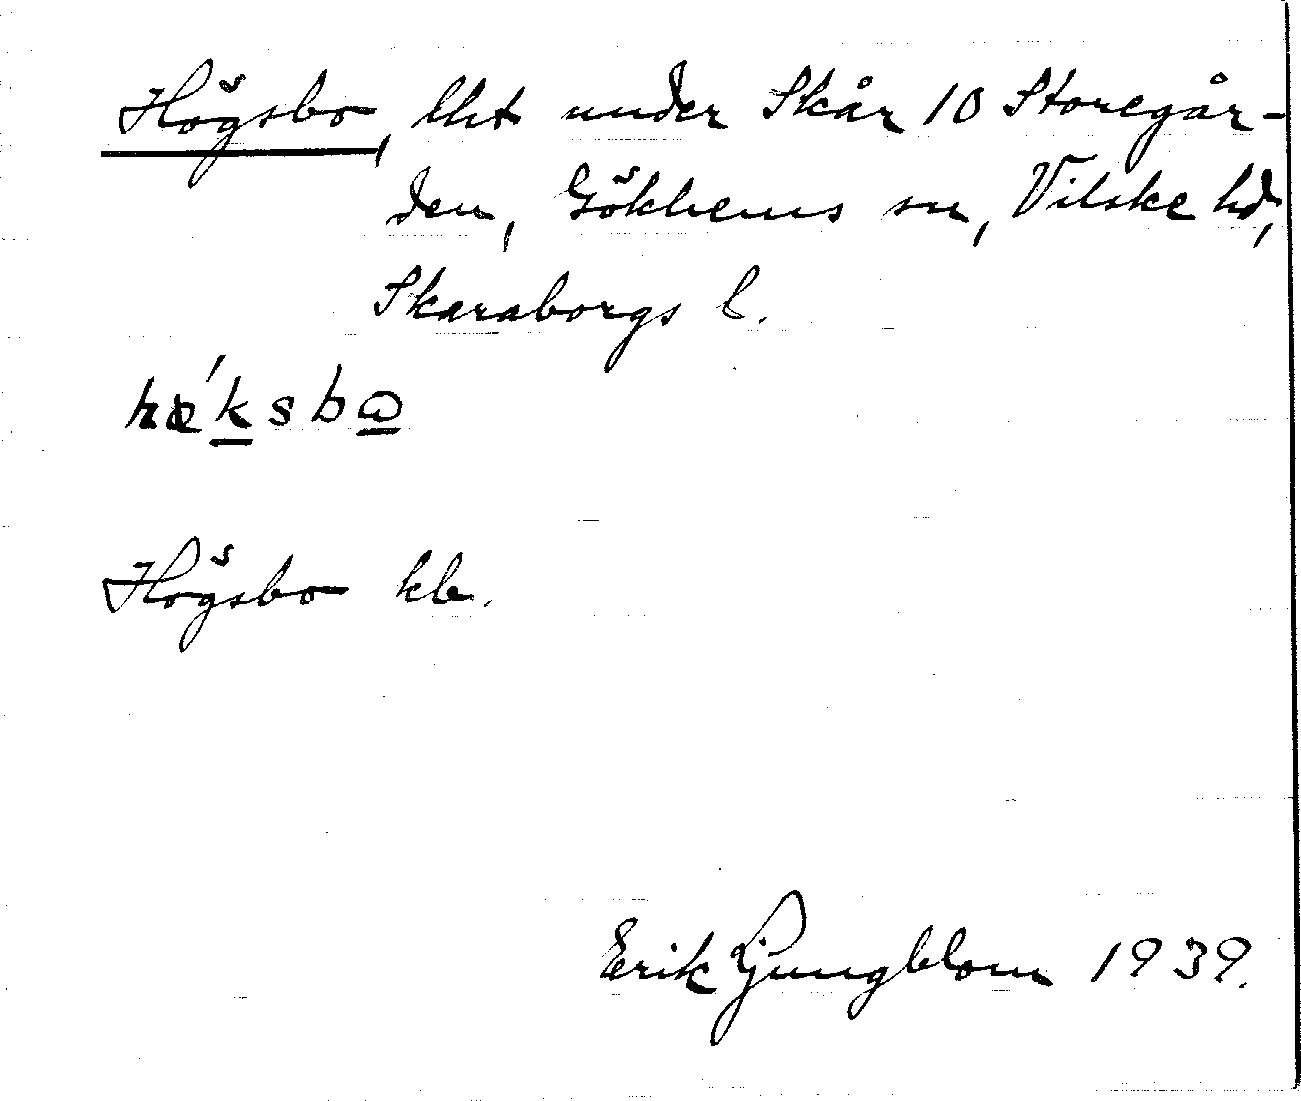 Högsbo, lht under Skår 10 Storegår-
den, Gökhems sn, Vilske hd,
Skaraborgs l.
Högsbo kb.
Erik Ljungblom 1939.